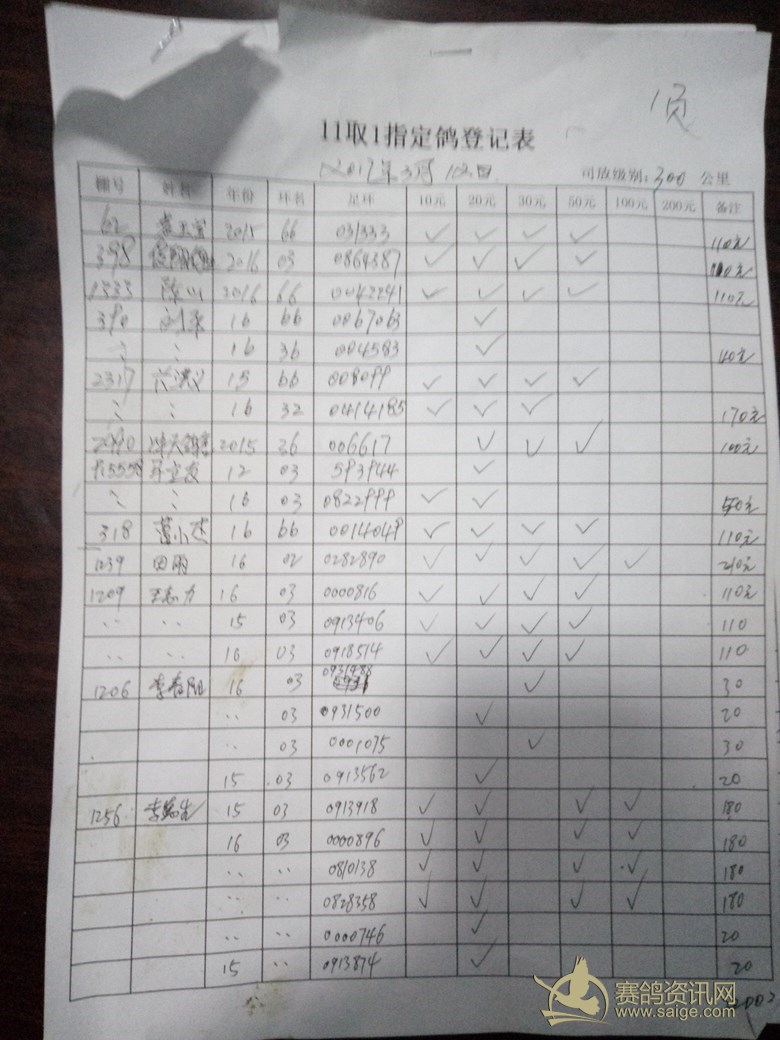 1页
11取1指定鸽登记表
2017年3月12日 司放级别:300公里
棚号 姓名 年份 环名 足环 10元 20元 30元 50元 100元 200元 备注
62 2015 66 031333 ✓ ✓ ✓ ✓ 110元
395 2016 03 0864387 ✓ ✓ ✓ ✓
1533 陈山 2016 66 0042241 ✓ ✓ ✓ ✓ 110元
390 刘 16 66 0067063 ✓
16 36 004583 ✓ 40元
2317 15 66 008099 ✓ ✓ ✓ ✓
16 32 0414185 ✓ ✓ ✓ 170元
2990 2015 26 006617 ✓ ✓ ✓ 100元
12 03 593944 ✓
16 03 0822999 ✓ ✓ 50元
318 董小 16 66 0014049 ✓ ✓ ✓ ✓ 110元
1239 田雨 16 02 0282890 ✓ ✓ ✓ ✓ ✓ 210元
1209 王 力 16 03 0000816 ✓ ✓ ✓ ✓ 110元
15 03 0913406 ✓ ✓ ✓ ✓ 110
16 03 0918514 ✓ ✓ ✓ ✓ 110
1206 李春阳 16 03 0931488 ✓ 30
03 0931500 ✓ 20
03 0001075 ✓ 30
15 03 0913562 ✓ 20
1256 李 15 03 0913918 ✓ ✓ ✓ ✓ 180
16 03 0000896 ✓ ✓ ✓ ✓ 180
0810138 ✓ ✓ ✓ ✓ 180
0828358 ✓ ✓ ✓ ✓ 180
0000746 ✓ 20
15 0913874 ✓ 20
赛鸽资讯网
www.saige.com